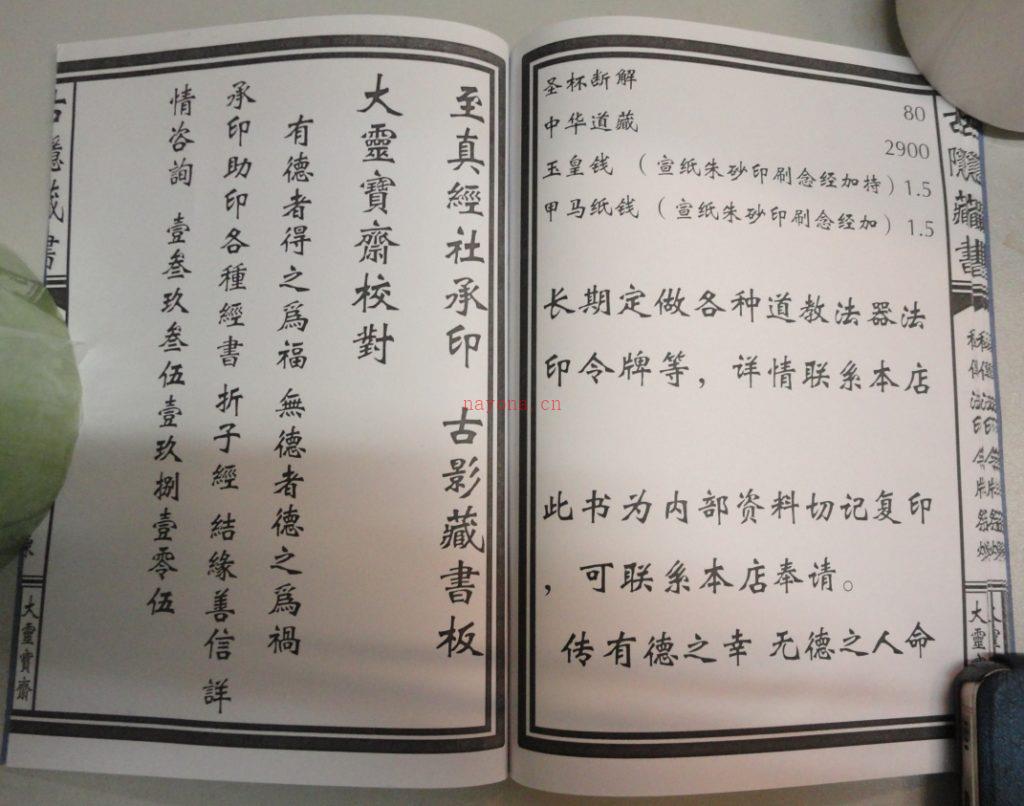 至真經社承印 古影藏書板
大靈寶齋校對
有德者得之爲福 無德者德之爲禍
承印助印各種經書 折子經 結緣善信 詳
情咨詢 壹叁玖叁伍壹玖捌壹零伍
大靈寶齋
圣杯断解 80
中华道藏 2900
玉皇钱 （宣纸朱砂印刷念经加持）1.5
甲马纸钱 （宣纸朱砂印刷念经加）1.5
长期定做各种道教法器法
印令牌等，详情联系本店
此书为内部资料切记复印
，可联系本店奉请。
传有德之幸 无德之人命
隱藏書
nayona.cn